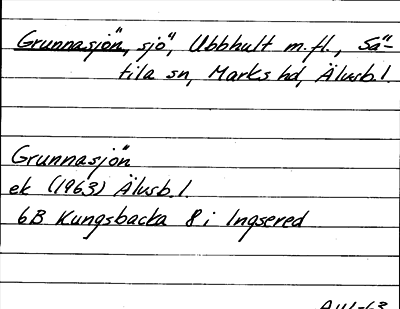 Grunnasjön, sjö, Ubbhult m.fl., Sä-
tila sn, Marks hd, Älvsb.l.
Grunnasjön
ek (1963) Älvsb.l.
6B Kungsbacka 8 i Ingsered